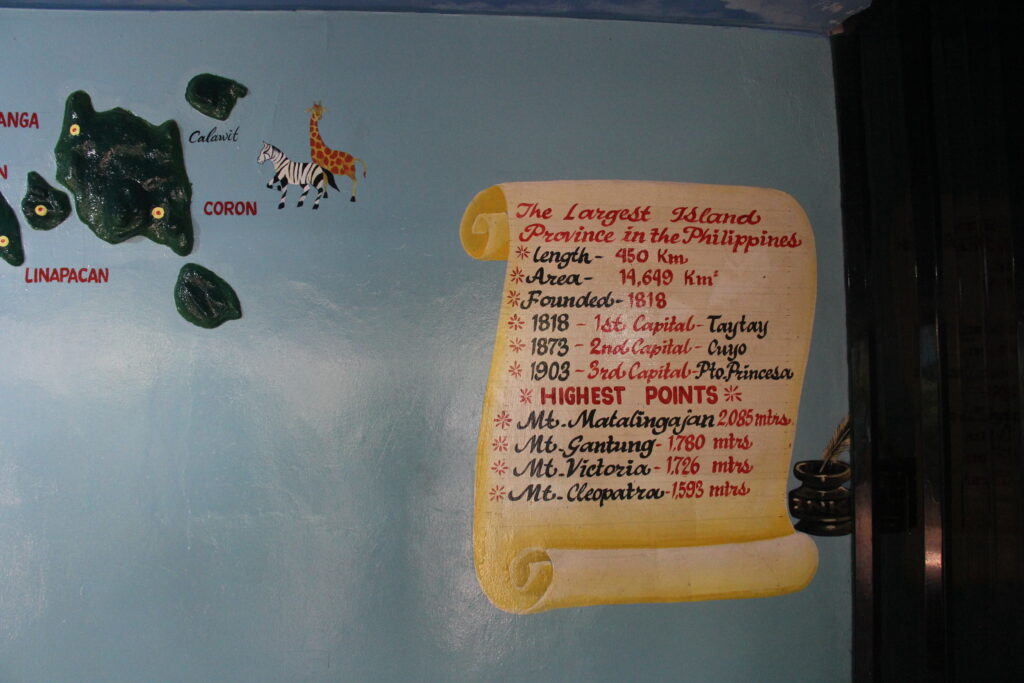 ANGA
Calawit
N
CORON
LINAPACAN
The Largest Island
Province in the Philippines
Length - 450 Km
Area - 14,649 Km²
Founded - 1818
1818 - 1st Capital - Taytay
1873 - 2nd Capital - Cuyo
1903 - 3rd Capital - Pto. Princesa
HIGHEST POINTS
Mt. Matalingajan 2,085 mtrs.
Mt. Gantung - 1,780 mtrs
Mt. Victoria - 1,726 mtrs
Mt. Cleopatra - 1,593 mtrs